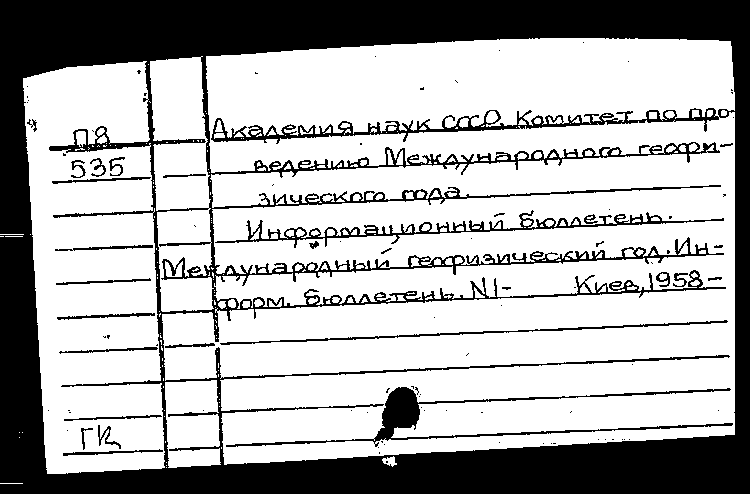 П8
535
Академия наук СССР. Комитет по про-
ведению Международного геофи-
зического года.
Информационный бюллетень.
Международный геофизический год. Ин-
форм. бюллетень. N1-    Киев, 1958-
ГК